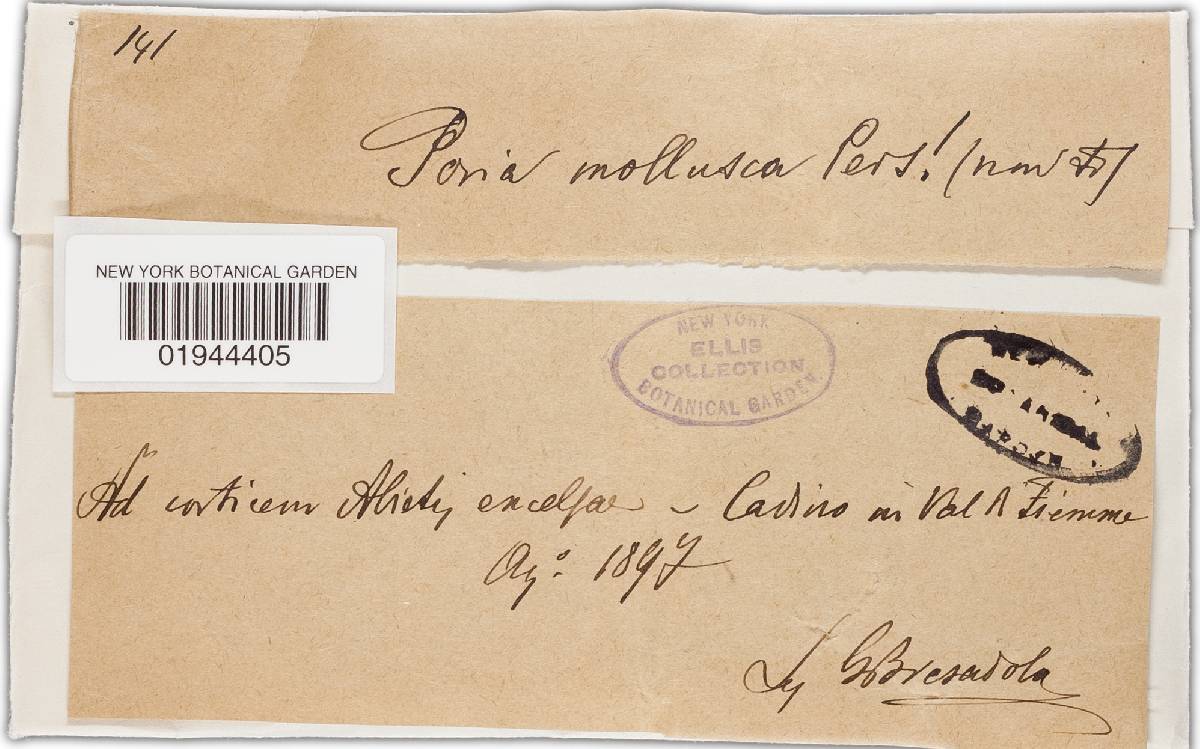 141
Poria mollusca Pers! (non Fr)
NEW YORK BOTANICAL GARDEN
01944405
NEW YORK
ELLIS
COLLECTION
BOTANICAL GARDEN
NEW
GARDEN
Ad corticem Abietis excelsae – Cadino in Val di Fiemme
Ag.º 1897
Lg GBresadola